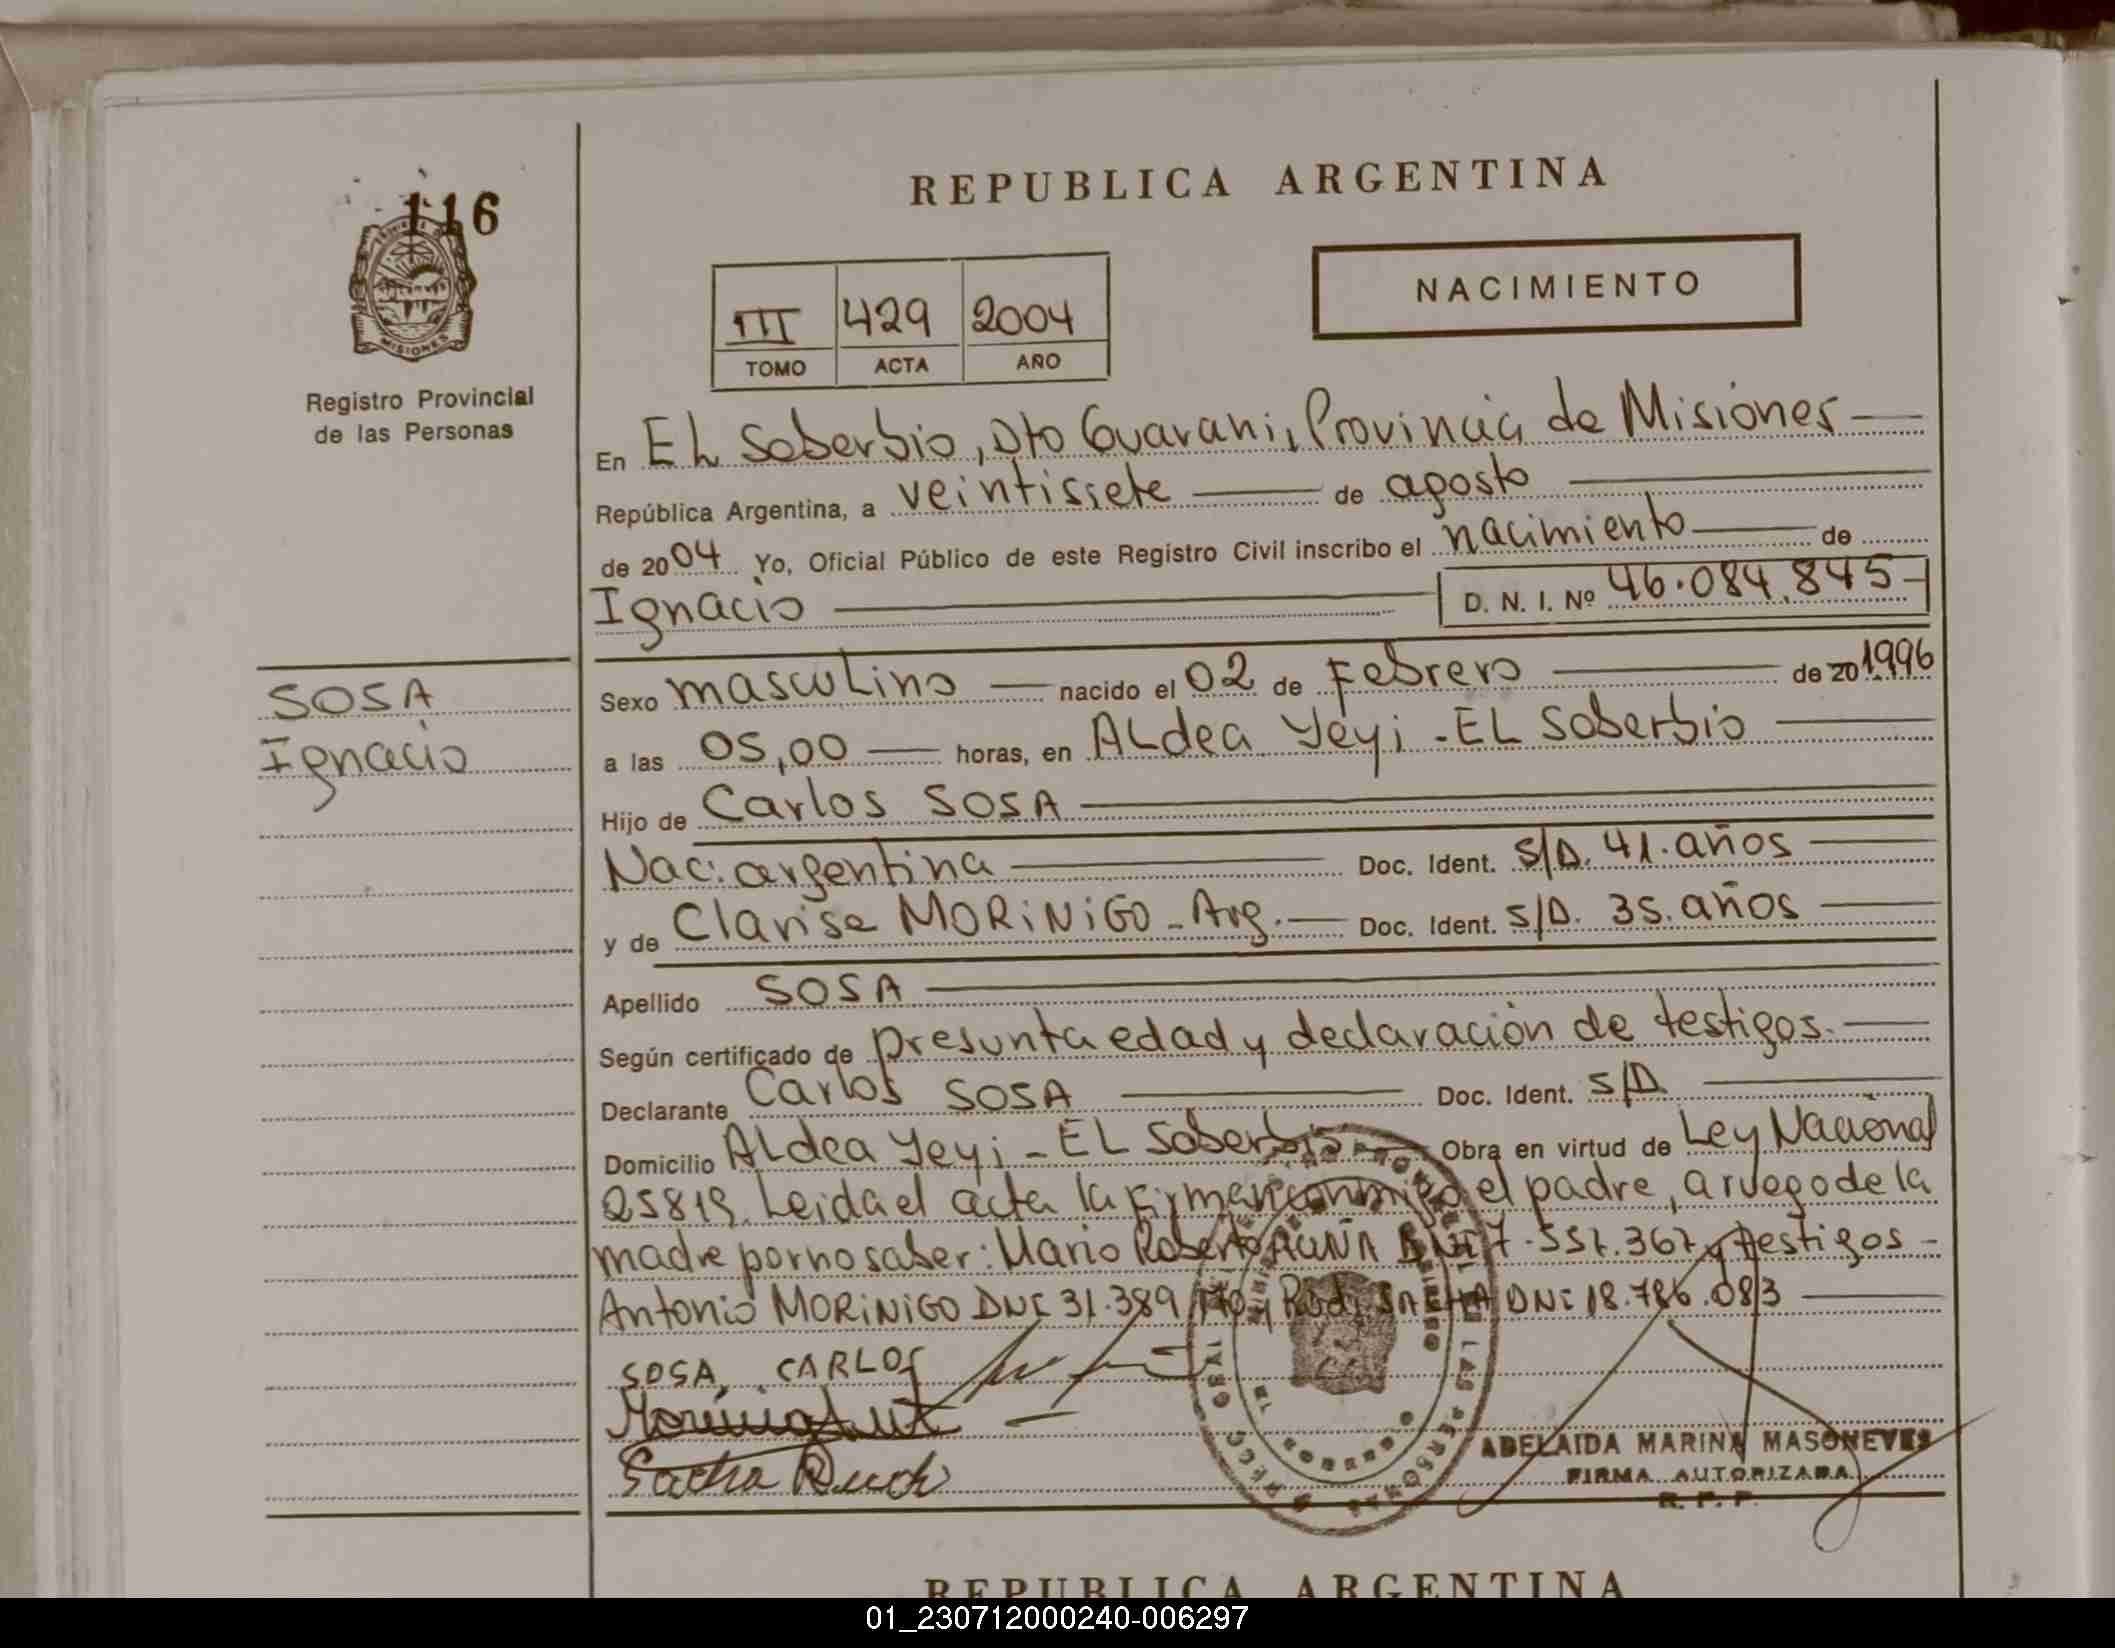 116
MISIONES
Registro Provincial
de las Personas
REPUBLICA ARGENTINA
NACIMIENTO
III 429 2004
TOMO ACTA AÑO
En EL Soberbio, Dto Guarani, Provincia de Misiones
República Argentina, a veintisiete de agosto
de 2004 Yo, Oficial Público de este Registro Civil inscribo el nacimiento de
Ignacio D. N. I. Nº 46.084.845
SOSA
Ignacio
Sexo masculino nacido el 02 de Febrero de 20 1996
a las 05,00 horas, en ALdea Yeyi - EL Soberbio
Hijo de Carlos SOSA
Nac: argentina Doc. Ident. S/D. 41. años
y de Clarisa MORINIGO - Arg. Doc. Ident. S/D. 35. años
Apellido SOSA
Según certificado de presunta edad y declaración de testigos.
Declarante Carlos SOSA Doc. Ident. S/D
Domicilio ALdea Yeyi - EL Soberbio Obra en virtud de Ley Nacional
25819. Leida el acta la firman conmigo el padre, a ruego de la
madre por no saber: Mario Roberto ACUÑA DNI 7.557.367 y testigos -
Antonio MORINIGO DNI 31.389.170 y Rudi SACHA DNI 18.786.083
SOSA CARLOS
Sacha Rudi
ADELAIDA MARINA MASONEVES
FIRMA AUTORIZADA
R. P. P.
REPUBLICA ARGENTINA
01_230712000240-006297